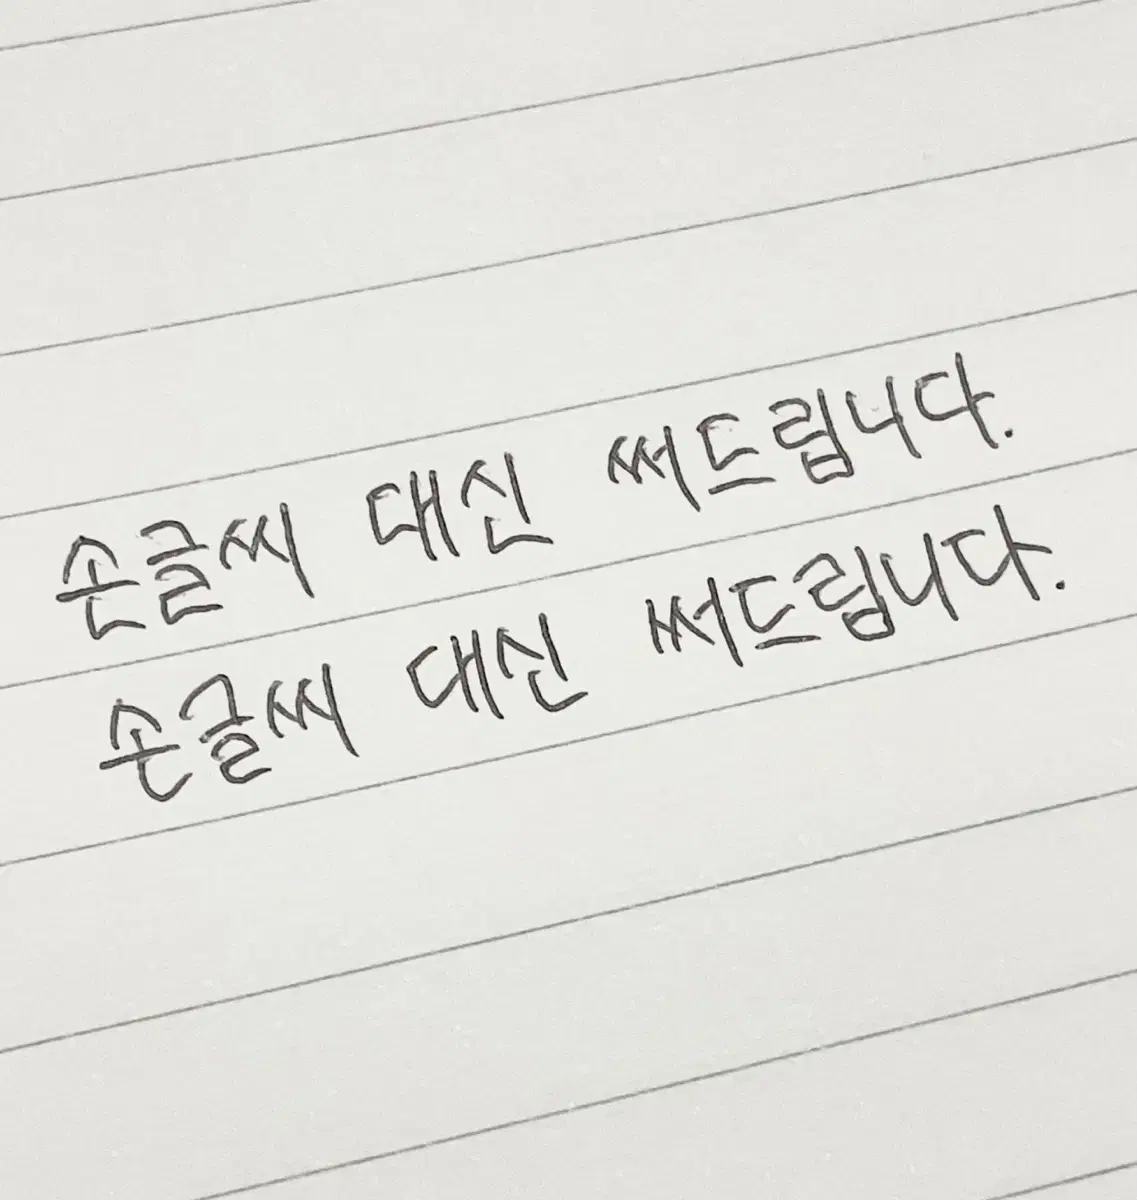 손글씨 대신 써드립니다.
손글씨 대신 써드립니다.